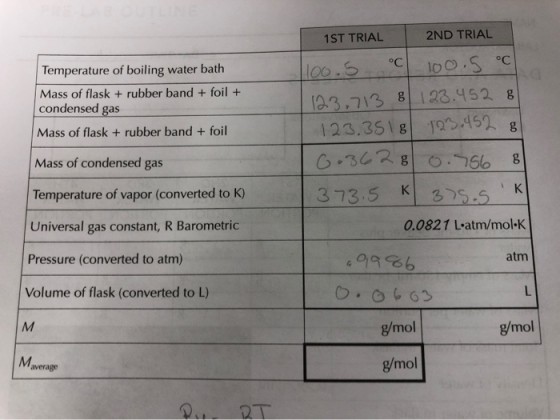 PRE-LAB OUTLINE
1ST TRIAL 2ND TRIAL
Temperature of boiling water bath 100.5 °C 100.5 °C
Mass of flask + rubber band + foil +
condensed gas 123.713 g 123.452 g
Mass of flask + rubber band + foil 123.351 g 123.452 g
Mass of condensed gas 0.362 g g
Temperature of vapor (converted to K) 373.5 K 375.5 K
Universal gas constant, R Barometric 0.0821 L•atm/mol•K
Pressure (converted to atm) .9986 atm
Volume of flask (converted to L) L
M g/mol g/mol
Maverage g/mol
RT